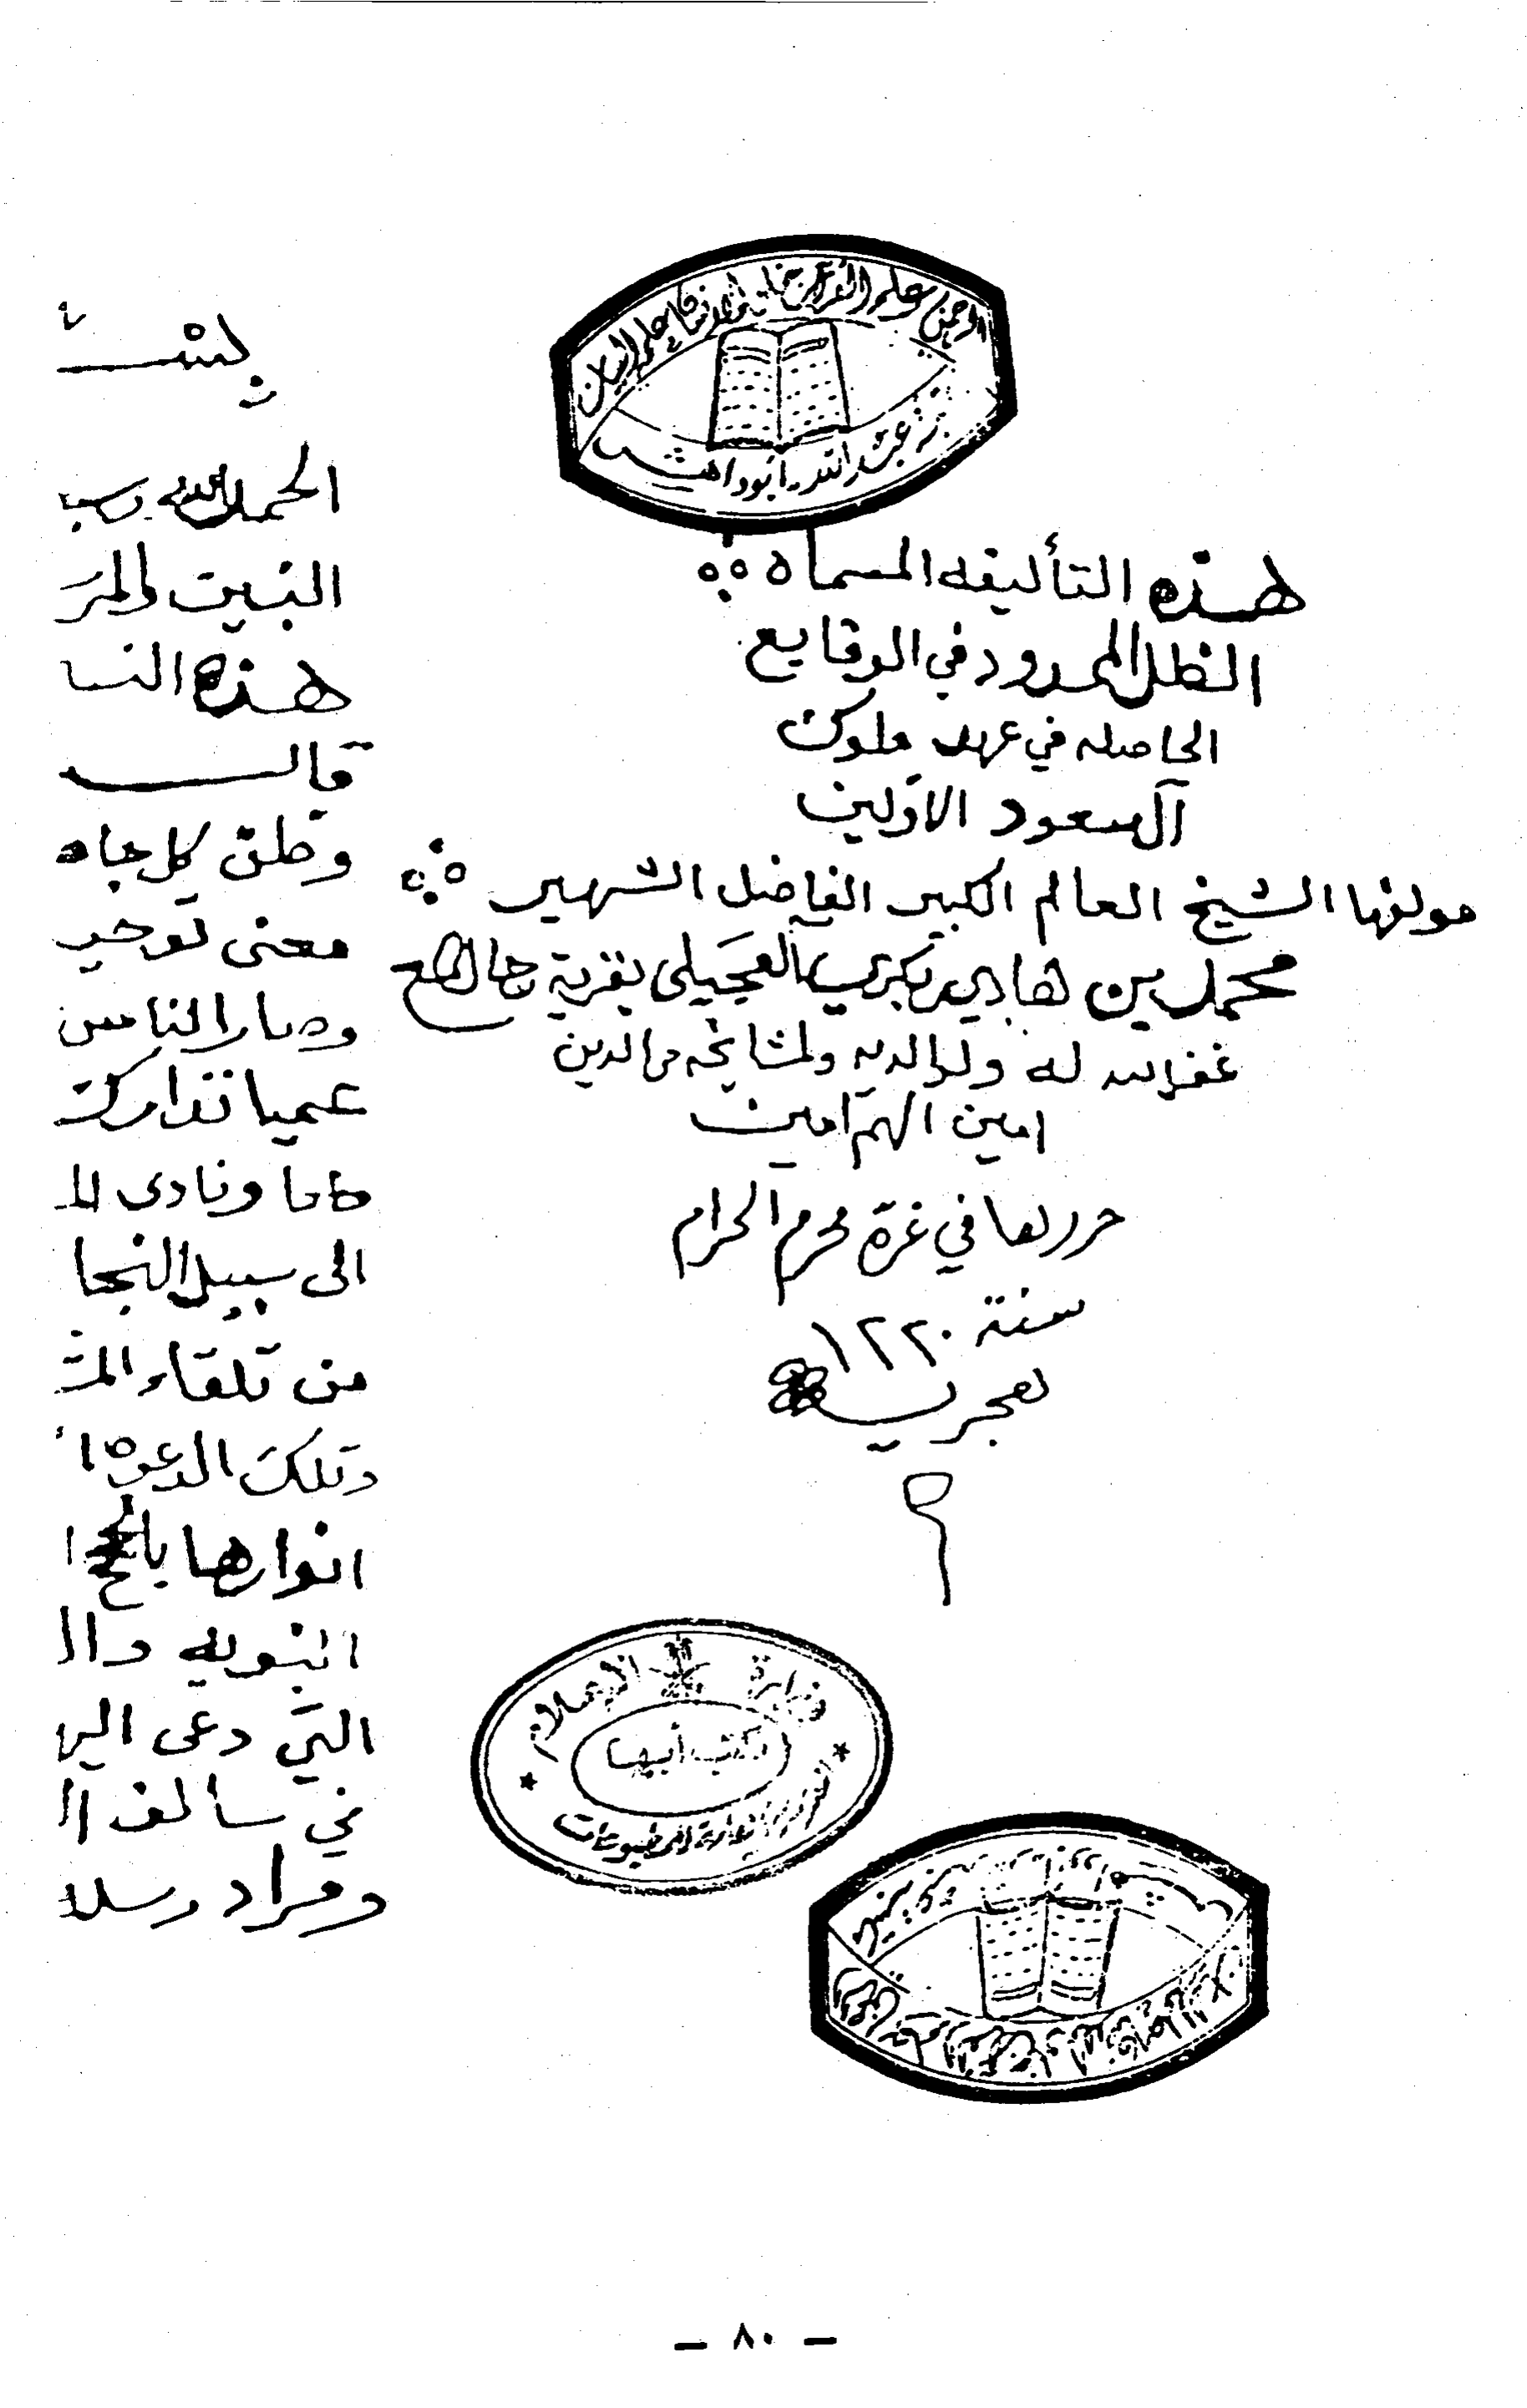 الرحمن علم القرآن خلق الإنسان علمه البيان
هذه التأليفه المسماه
الظل الممدود في الوقايع
الحاصله في عهد ملوك
آل سعود الاولين
مولفها الشيخ العالم الكبير الفاضل الشهير
محمد بن هادي بن بكري العجيلي بقرية رجال المع
غفر الله له ولوالديه ولمشايخه في الدين
امين الهم امين
حررلها في غرة محرم الحرام
سنة ١٢٢٠
هجريه
وزارة الإعلام
مكتب أبها
المطبوعات
الحمد لله رب
النبين والمر
هذه النسا
قال
وظن كل جاه
معنى توحيد
وصار الناس
عميا تدارك
ونادى
الى سبيل النجا
من تلقاء المش
وتلك الدعوه ا
انوارها
النبويه وال
التي دعى اليه
في سالف ال
ومراد رسله
— ٨٠ —